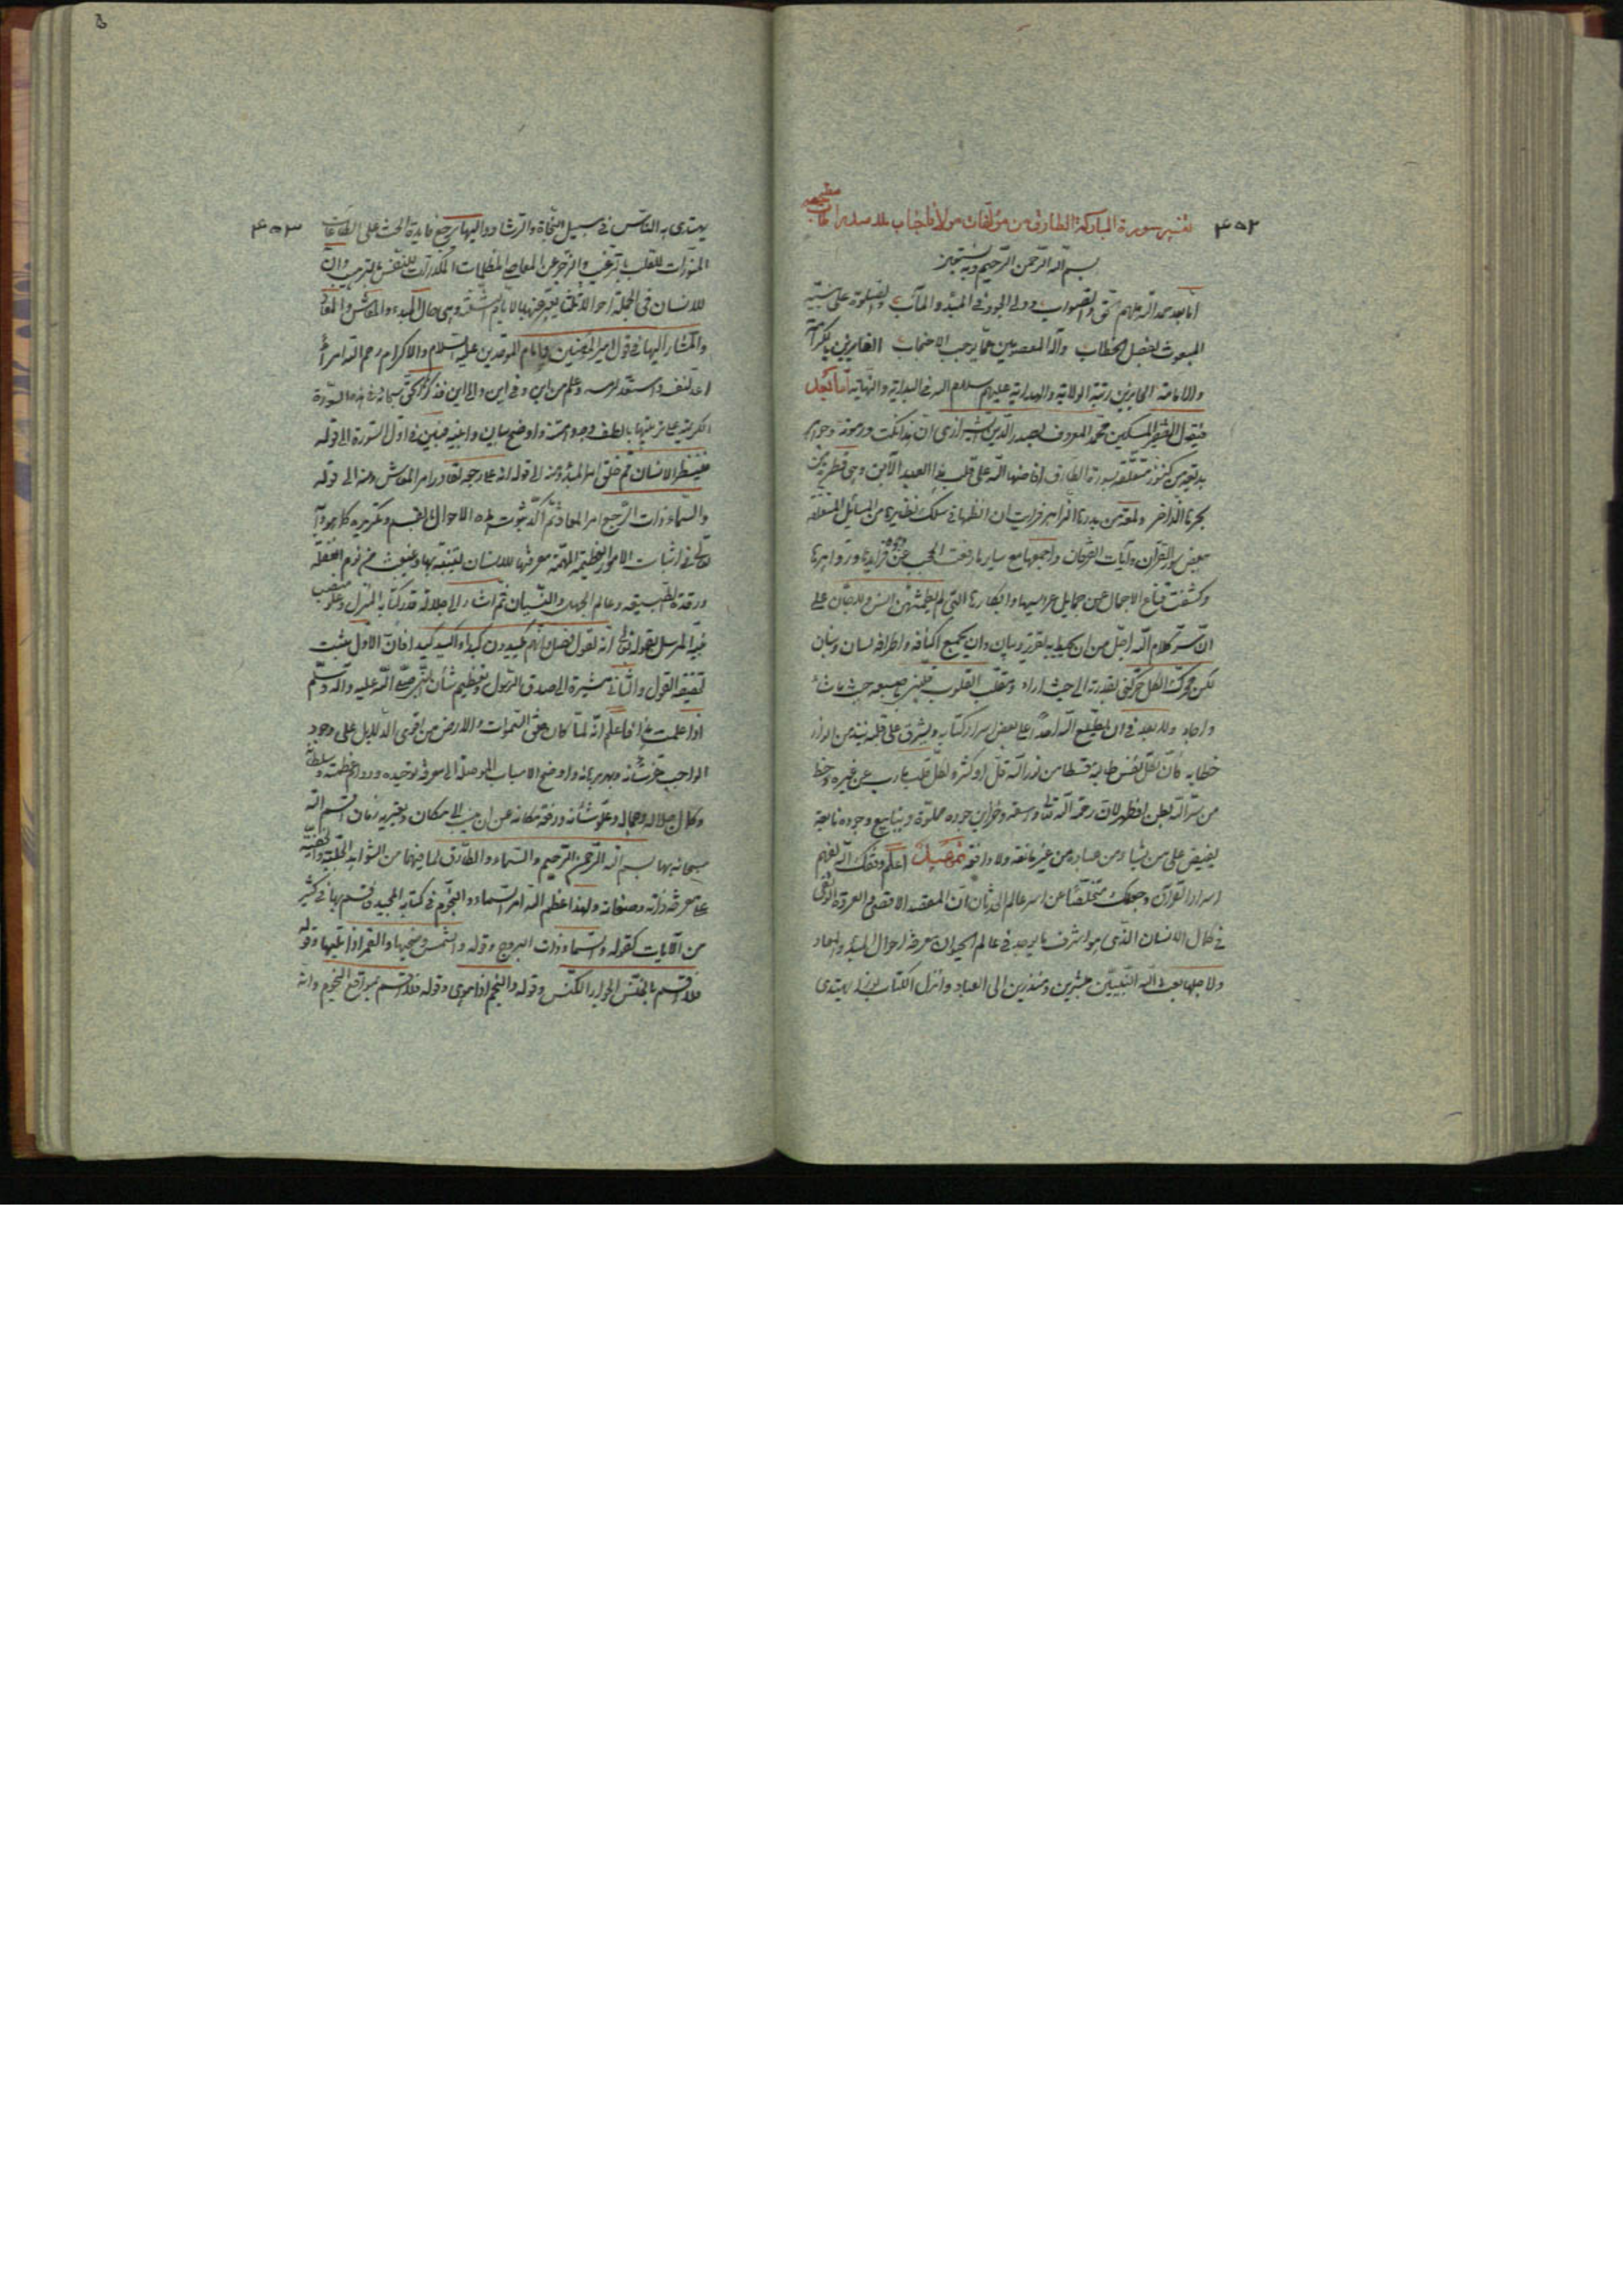 ۴۵۲
تفسير سورة المباركة الطارق من مؤلفات مولانا جناب ملا صدرا
بسم الله الرحمن الرحيم وبه نستعين
اما بعد حمد الله ملهم الحق والصواب وولى الجود فى المبدء والمآب والصلوة على نبيه
المبعوث لفصل الخطاب وآله المعصومين عما يوجب الفايزين بكرامة
والامامة الحايزين رتبة الولاية والهداية عليهم سلام الله فى البداية والنهاية اما بعد
فيقول الفقير المسكين محمد المعروف بصدر الدين الشيرازى ان هذه نكت ورموز وجواهر
بديعة من كنوز متعلقة بسورة الطارق افاضها الله على قلب هذا العبد الآبق وهى قطرة من
بحرها الذاخر ولمعة من بدرها الزاهر فرايت ان انظمها فى سلك نظيرها من المسايل المتعلقة
ببعض سور القرآن وآيات الفرقان واجمعها مع ساير ما رفعت الحجب عن وجوه فرايدها وزواهرها
وكشفت قناع الاجمال عن جمايل عرايسها وابكارها التى لم يطمثهن انس ولا جان على
ان سر كلام الله اجل من ان يحيط به تقرير وبيان وان يجمع اكنافه واطرافه لسان وبنان
لكن محرك الكل حركنى بقدرته الى حيث اراد ومقلب القلوب
واجاد ولا بعد فى ان يطلع الله احدا على بعض اسرار كتابه ويشرق على قلبه نبذ من انوار
خطابه فان لكل نفس طالبة قسطا من نور الله قل او كثر ولكل قلب هارب عن غيره حظ
من سر الله بطن او ظهر لان رحمة الله تعالى واسعة وخزاين جوده مملوة وينابيع وجوده نابعة
يفيض على من يشاء من عباده من غير مانعة ولا دافعة تمهيد اعلم وفقك الله لفهم
اسرار القرآن وجعلك متخلصا عن اسر عالم الحدثان ان المقصد الاقصى والعروة الوثقى
فى كمال الانسان الذى هو اشرف ما يوجد فى عالم الحيوان معرفة احوال المبدء والمعاد
ولاجلها بعث الله النبيين مبشرين ومنذرين الى العباد وانزل الكتاب نورا يهتدى
۴۵۳
يهتدى به الناس فى سبيل النجاة والرشاد واليها يرجع فايدة الحث على الطاعات
المنورات للقلب بالترغيب والزجر عن المعاصى المظلمات المكدرات للنفس بالترهيب وان
للانسان فى الجملة احوالا ثلثا يعبر عنها بالايام الثلثة وهى حال المبدء والمعاش والمعاد
والمشار اليها فى قول امير المؤمنين وامام الموحدين عليه السلام والاكرام رحم الله امرأ
اعد لنفسه واستعد لرمسه وعلم من اين وفى اين والى اين فذكر الحق سبحانه فى هذه السورة
الكريمة على ترتيبها بالطف وجوه وامتنه واوضح بيان وابينه فبين فى اول السورة الى قوله
فلينظر الانسان مم خلق امر المبدء ومنه الى قوله انه على رجعه لقادر امر المعاش ومنه الى قوله
والسماء ذات الرجع امر المعاد ثم اكد ثبوت هذه الاحوال بالقسم وتكريره كما هو دأبه
تعالى فى اثبات الامور العظيمة المهمة معرفتها للانسان ليتنبه بها وينبعث من نوم الغفلة
ورقدة الطبيعة وعالم الجهل والنسيان ثم اشار الى جلالة قدر كتابه المنزل وعلو منصب
نبيه المرسل بقوله تعالى انه لقول فصل وانهم يكيدون كيدا واكيد كيدا فان الاول مثبت
لحقيقة القول والثانى مشيرة الى صدق الرسول وتعظيم شأن النبى صلى الله عليه وآله وسلم
اذا علمت هذا فاعلم انه لما كان خلق السموات والارض من اقوى الدلايل على وجود
الواجب عز شأنه وبهر برهانه واوضح الاسباب الموصلة الى معرفة توحيده ودوام عظمته وسلطانه
وكمال جلاله وجماله وعلو شأنه ورفعة مكانه عن ان ينسب الى مكان ويغيره زمان اقسم الله
سبحانه بها بسم الله الرحمن الرحيم والسماء والطارق لما فيهما من الشواهد الجلية والخفية
على معرفة ذاته وصفاته ولهذا عظم الله امر السماء والنجوم فى كتابه المجيد فاقسم بها فى كثير
من الآيات كقوله والسماء ذات البروج وقوله والشمس وضحيها والقمر اذا تليها وقوله
فلا اقسم بالخنس الجوار الكنس وقوله والنجم اذا هوى وقوله فلا اقسم بمواقع النجوم وانه